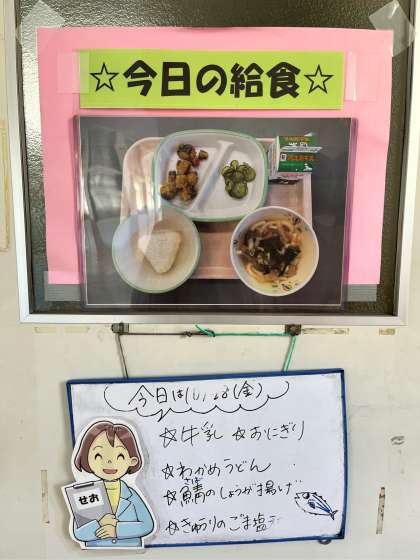 ☆今日の給食☆
今日は10/28(金)
☆牛乳 ☆おにぎり
☆わかめうどん
さば
☆鯖のしょうが揚げ
☆きゅうりのごま塩
せお